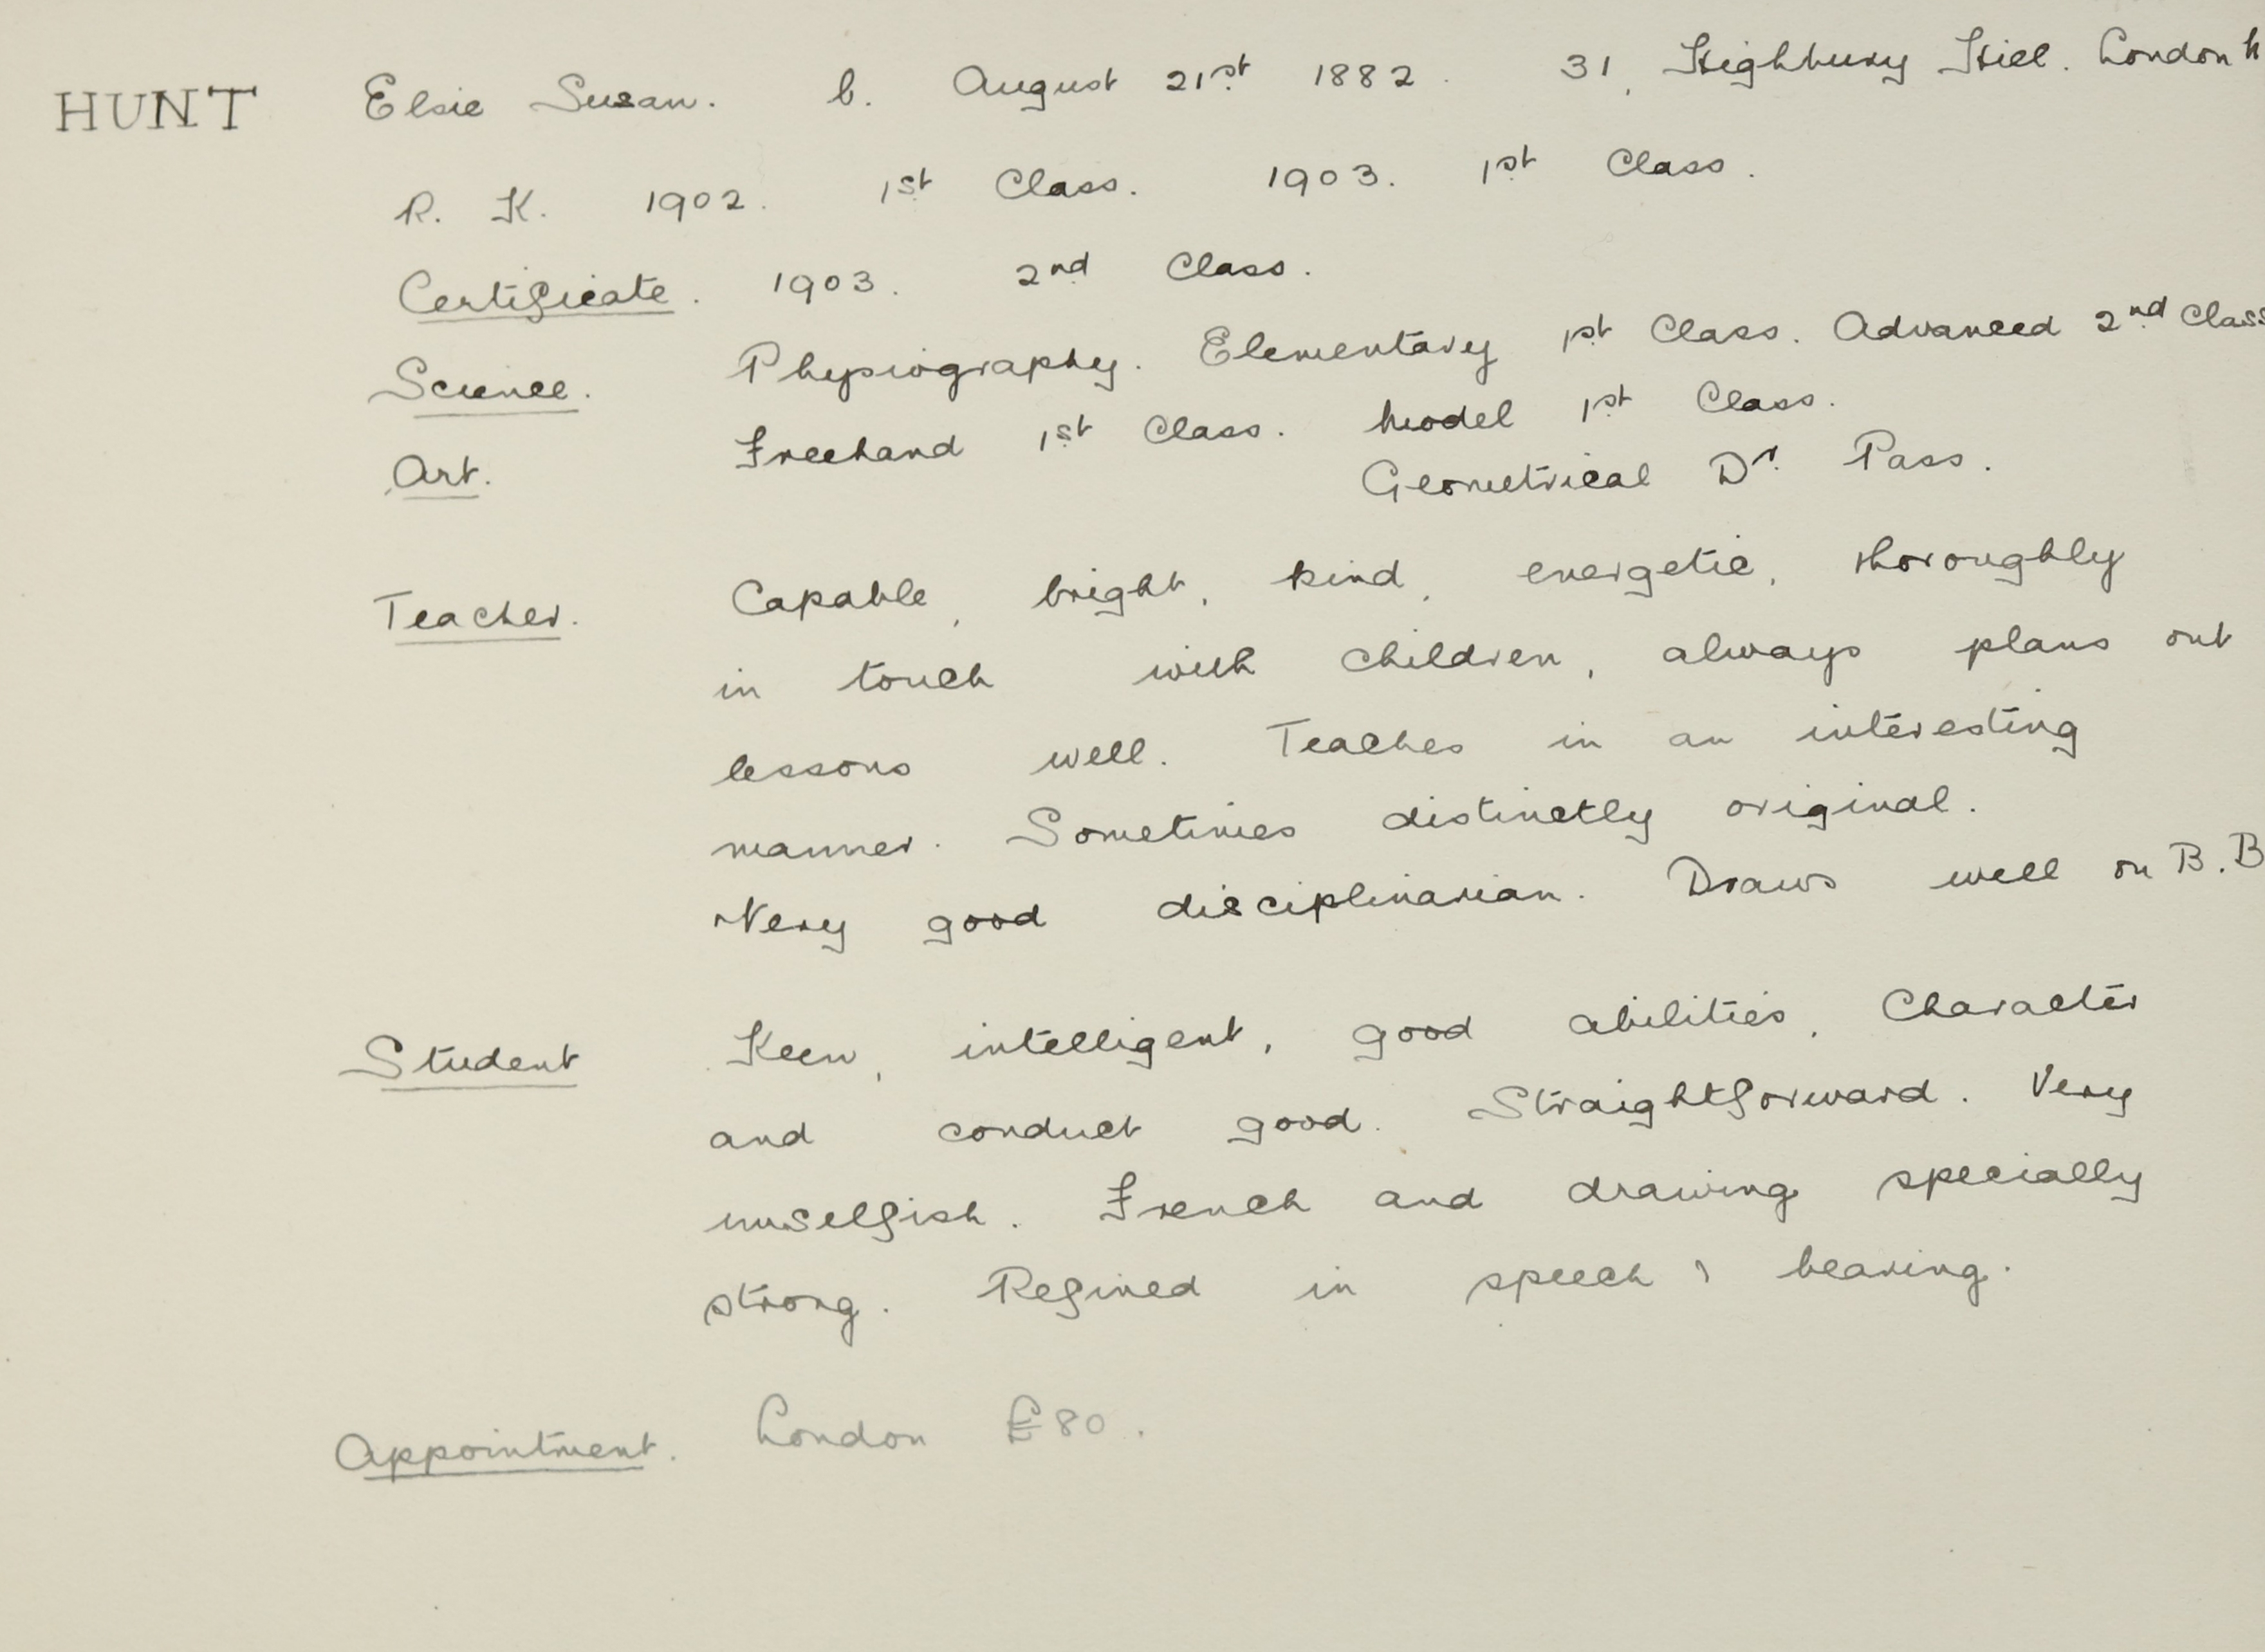 HUNT Elsie Susan. b. August 21st 1882. 31, Highbury Hill. London N
R. K. 1902. 1st Class. 1903. 1st Class.
Certificate. 1903. 2nd Class.
Science. Physiography. Elementary 1st Class. Advanced 2nd Class
Art. Freehand 1st Class. Model 1st Class.
Geometrical Dr. Pass.
Teacher. Capable, bright, kind, energetic, thoroughly
in touch with children, always plans out
lessons well. Teaches in an interesting
manner. Sometimes distinctly original.
Very good disciplinarian. Draws well on B.B
Student Keen, intelligent, good abilities, Character
and conduct good. Straightforward. Very
unselfish. French and drawing specially
strong. Refined in speech & bearing.
Appointment. London £80.